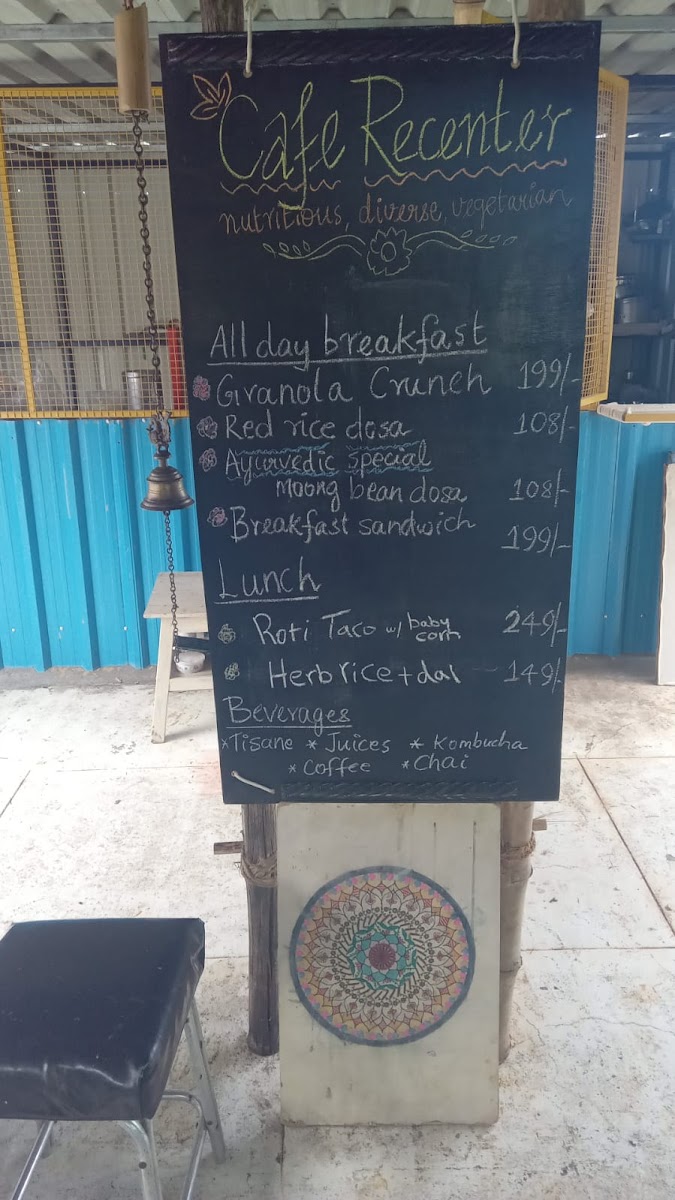 Cafe Recenter
nutritious, diverse, vegetarian
All day breakfast
Granola Crunch 199/-
Red rice dosa 108/-
Ayurvedic special
Moong bean dosa 108/-
Breakfast sandwich 199/-
Lunch
Roti Taco w/ baby corn 249/-
Herb rice + dal 149/-
Beverages
* Tisane * Juices * Kombucha
* Coffee * Chai